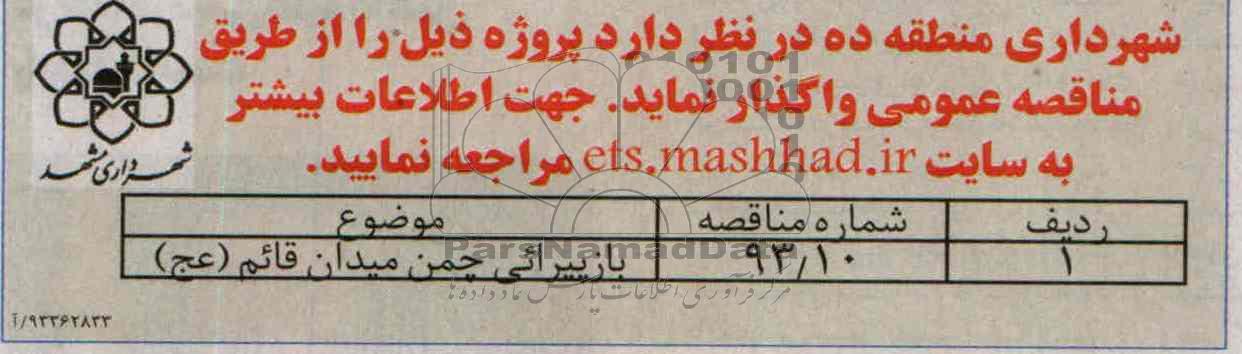 شهرداری منطقه ده در نظر دارد پروژه ذیل را از طریق
مناقصه عمومی واگذار نماید. جهت اطلاعات بیشتر
به سایت ets.mashhad.ir مراجعه نمایید.
شهرداری مشهد
ردیف شماره مناقصه موضوع
۱ ۹۳/۱۰ بازپیرائی چمن میدان قائم (عج)
ParsNamadData
مرکز فرآوری اطلاعات پارس نماد داده ها
۹۳۳۶۲۸۳۳/آ